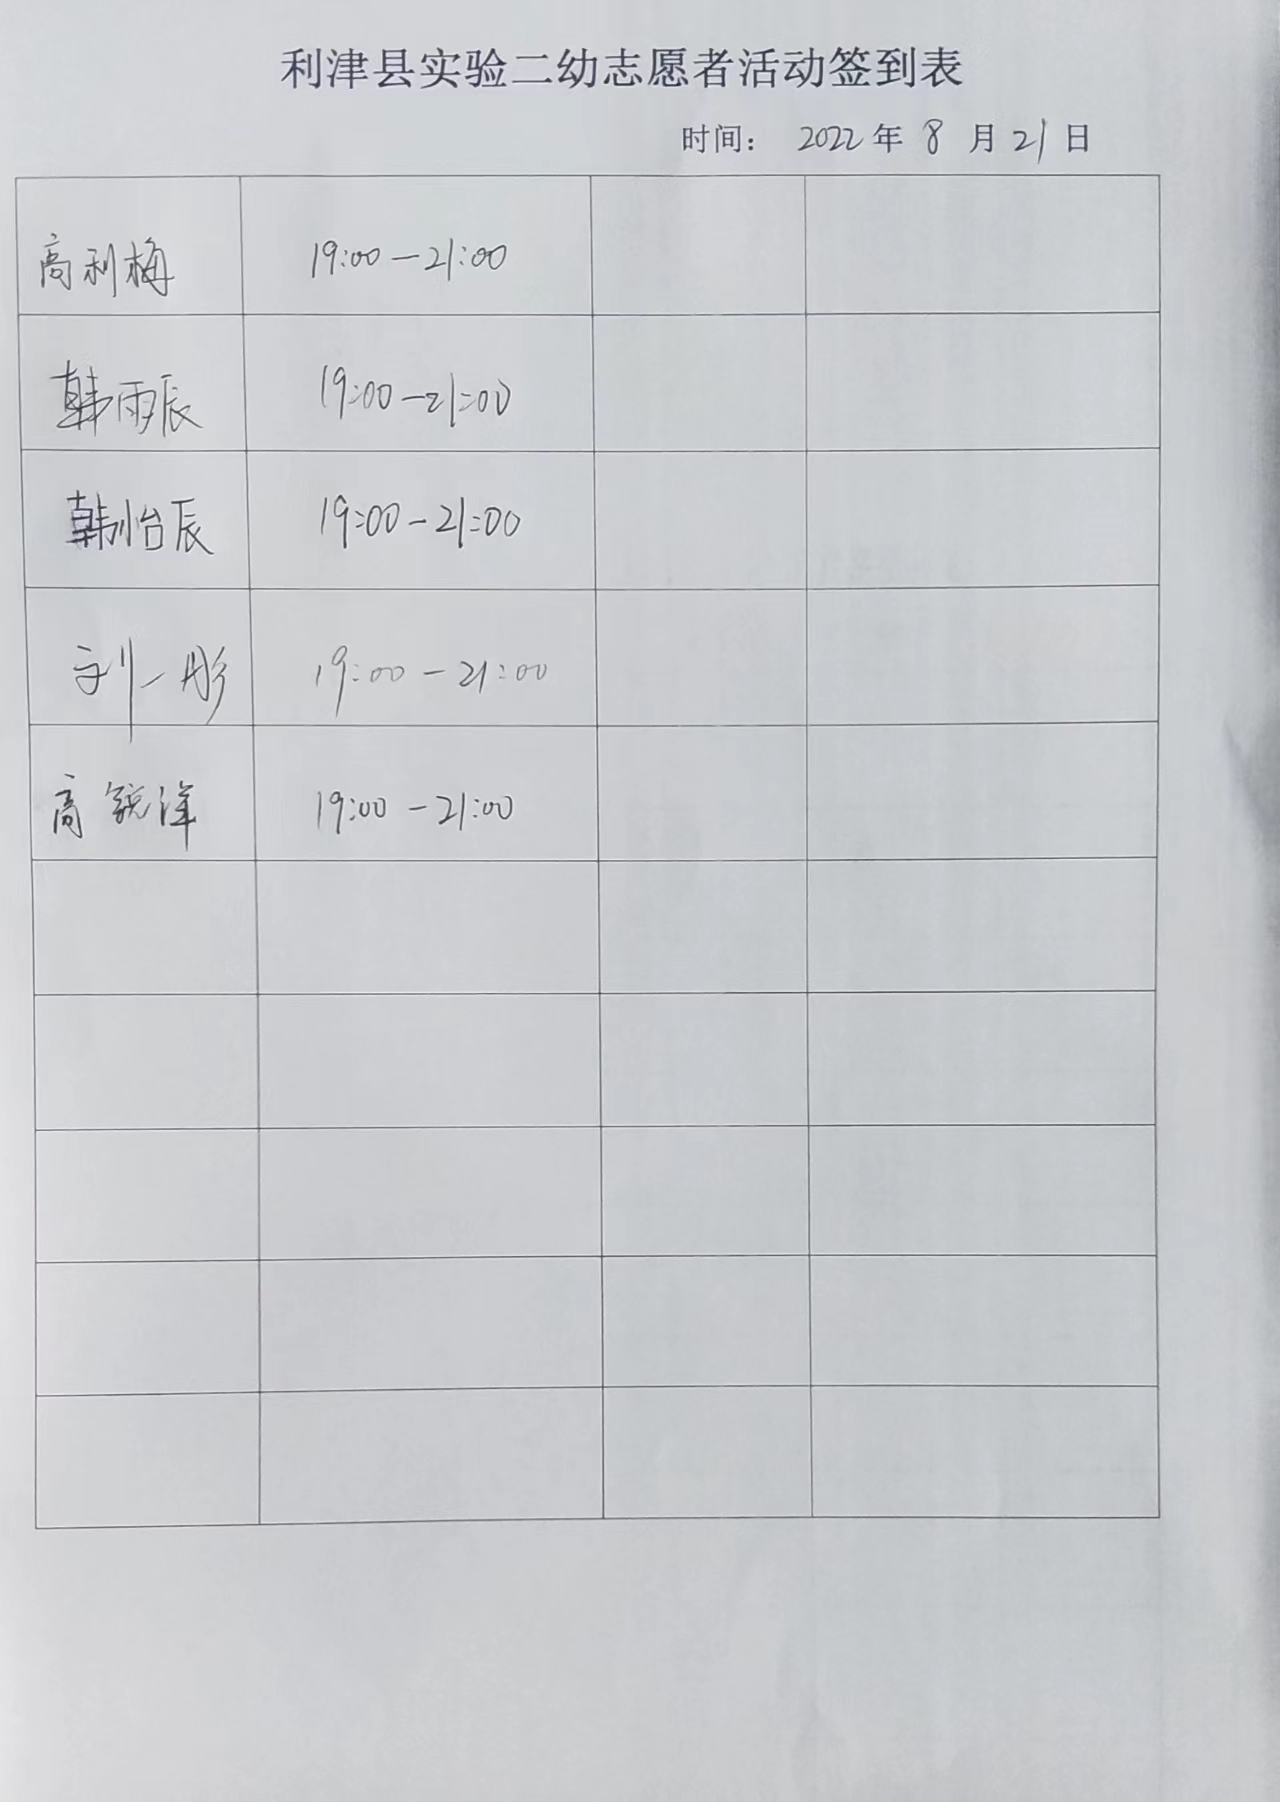 利津县实验二幼志愿者活动签到表
时间： 2022 年 8 月 21 日
高利梅 19:00—21:00
韩雨辰 19:00—21:00
韩怡辰 19:00—21:00
刘一彤 19:00—21:00
高锐洋 19:00—21:00